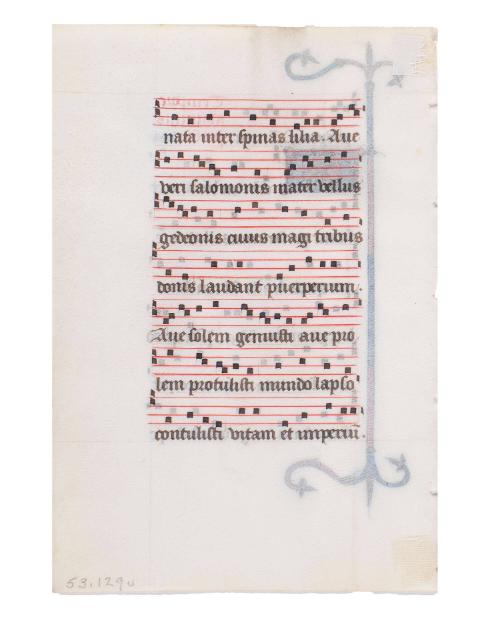 nata inter spinas lilia. Aue
veri salomonis mater vellus
gedeonis cuius magi tribus
donis laudant puerperium.
Aue solem genuisti aue pro
lem protulisti mundo lapso
contulisti vitam et imperiu.
53.129v